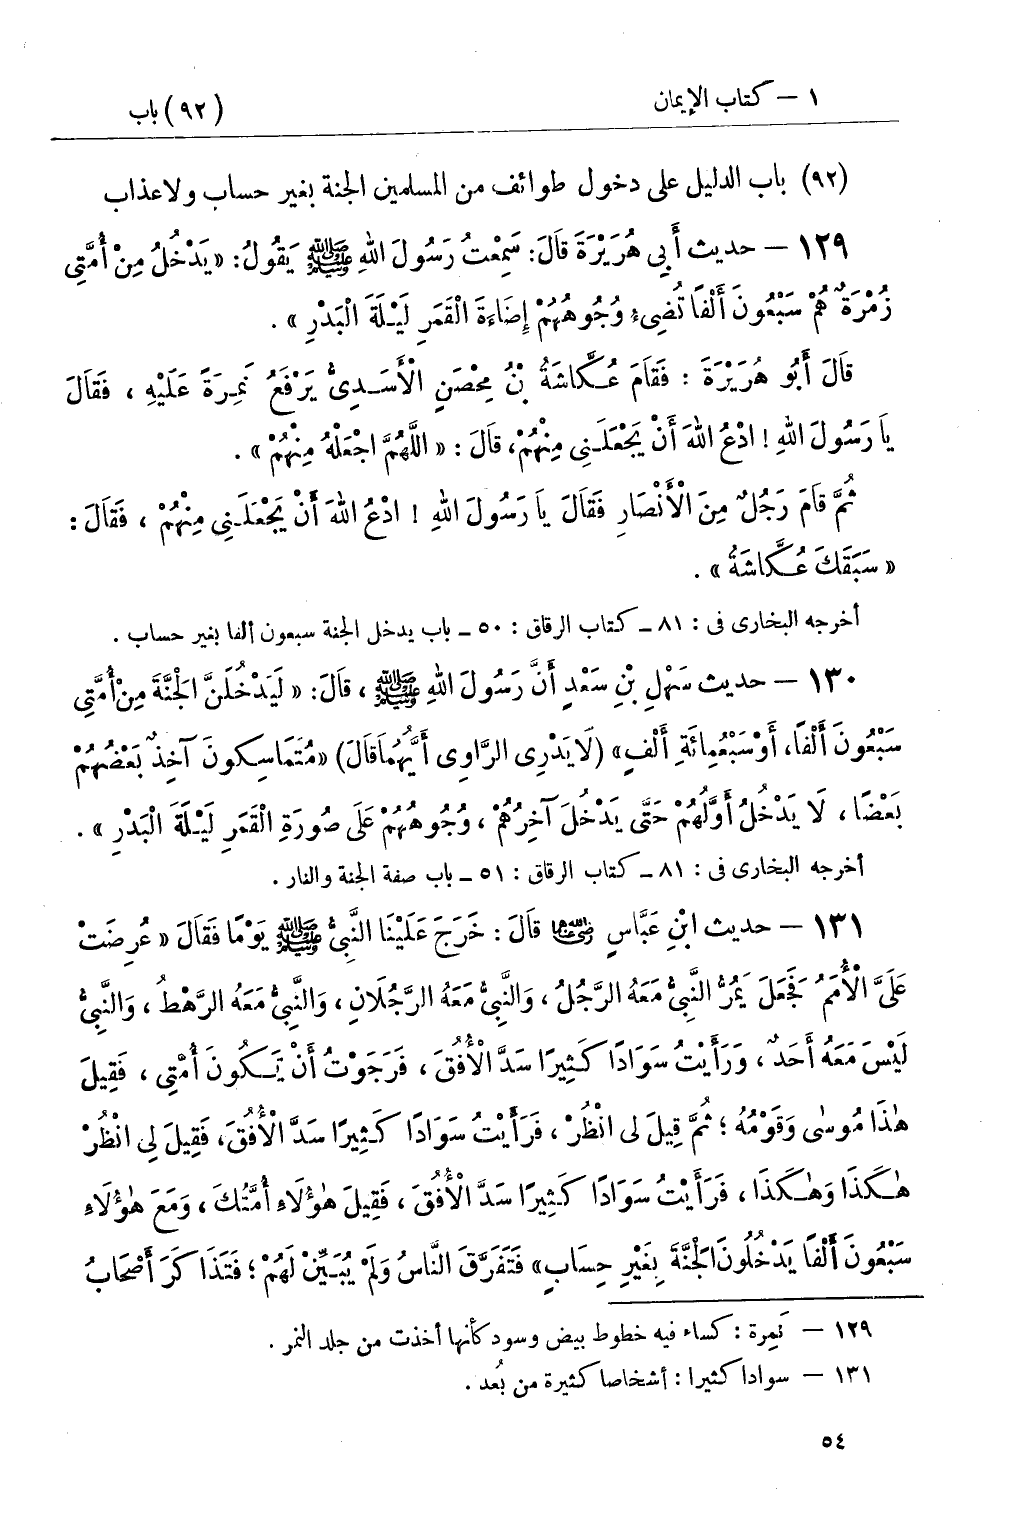 ١ – كتاب الإيمان
(٩٢) باب
(٩٢) باب الدليل على دخول طوائف من المسلمين الجنة بغير حساب ولا عذاب
١٢٩ – حديث أَبِي هُرَيْرَةَ قَالَ: سَمِعْتُ رَسُولَ اللهِ ﷺ يَقُولُ: « يَدْخُلُ مِنْ أُمَّتِي
زُمْرَةٌ هُمْ سَبْعُونَ أَلْفًا تُضِيءُ وُجُوهُهُمْ إِضَاءَةَ الْقَمَرِ لَيْلَةَ الْبَدْرِ » .
قَالَ أَبُو هُرَيْرَةَ : فَقَامَ عُكَّاشَةُ بْنُ مِحْصَنٍ الْأَسَدِىُّ يَرْفَعُ نَمِرَةً عَلَيْهِ ، فَقَالَ
يَا رَسُولَ اللهِ ! ادْعُ اللهَ أَنْ يَجْعَلَنِى مِنْهُمْ، قَالَ : « اللَّهُمَّ اجْعَلْهُ مِنْهُمْ » .
ثُمَّ قَامَ رَجُلٌ مِنَ الْأَنْصَارِ فَقَالَ يَا رَسُولَ اللهِ ! ادْعُ اللهَ أَنْ يَجْعَلَنِي مِنْهُمْ ، فَقَالَ :
« سَبَقَكَ عُكَّاشَةُ » .
أخرجه البخارى فى : ٨١ ـ كتاب الرقاق : ٥٠ ـ باب يدخل الجنة سبعون ألفا بغير حساب .
١٣٠ – حديث سَهْلِ بْنِ سَعْدٍ أَنَّ رَسُولَ اللهِ ﷺ ، قَالَ: « لَيَدْخُلَنَّ الْجَنَّةَ مِنْ أُمَّتِي
سَبْعُونَ أَلْفًا، أَوْ سَبْعُمِائَةِ أَلْفٍ» (لَا يَدْرِى الرَّاوِى أَيَّهُمَا قَالَ) «مُتَمَاسِكُونَ آخِذٌ بَعْضُهُمْ
بَعْضًا ، لَا يَدْخُلُ أَوَّلُهُمْ حَتَّى يَدْخُلَ آخِرُهُمْ ، وُجُوهُهُمْ عَلَى صُورَةِ الْقَمَرِ لَيْلَةَ الْبَدْرِ » .
أخرجه البخارى فى : ٨١ ـ كتاب الرقاق : ٥١ ـ باب صفة الجنة والنار .
١٣١ – حديث ابْنِ عَبَّاسٍ رضي الله عنهما قَالَ : خَرَجَ عَلَيْنَا النَّبِيُّ ﷺ يَوْمًا فَقَالَ « عُرِضَتْ
عَلَىَّ الْأُمَمُ فَجَعَلَ يَمُرُّ النَّبِيُّ مَعَهُ الرَّجُلُ ، وَالنَّبِيُّ مَعَهُ الرَّجُلَانِ ، وَالنَّبِيُّ مَعَهُ الرَّهْطُ ، وَالنَّبِيُّ
لَيْسَ مَعَهُ أَحَدٌ ، وَرَأَيْتُ سَوَادًا كَثِيرًا سَدَّ الْأُفُقَ ، فَرَجَوْتُ أَنْ تَكُونَ أُمَّتِي ، فَقِيلَ
هٰذَا مُوسٰى وَقَوْمُهُ ؛ ثُمَّ قِيلَ لِى انْظُرْ ، فَرَأَيْتُ سَوَادًا كَثِيرًا سَدَّ الْأُفُقَ، فَقِيلَ لِى انْظُرْ
هٰكَذَا وَهٰكَذَا ، فَرَأَيْتُ سَوَادًا كَثِيرًا سَدَّ الْأُفُقَ ، فَقِيلَ هٰؤُلَاءِ أُمَّتُكَ ، وَمَعَ هٰؤُلَاءِ
سَبْعُونَ أَلْفًا يَدْخُلُونَ الْجَنَّةَ بِغَيْرِ حِسَابٍ» فَتَفَرَّقَ النَّاسُ وَلَمْ يُبَيِّنْ لَهُمْ ؛ فَتَذَاكَرَ أَصْحَابُ
١٢٩ – نَمِرة : كساء فيه خطوط بيض وسود كأنها أخذت من جلد النمر .
١٣١ – سوادا كثيرا : أشخاصا كثيرة من بُعد .
٥٤